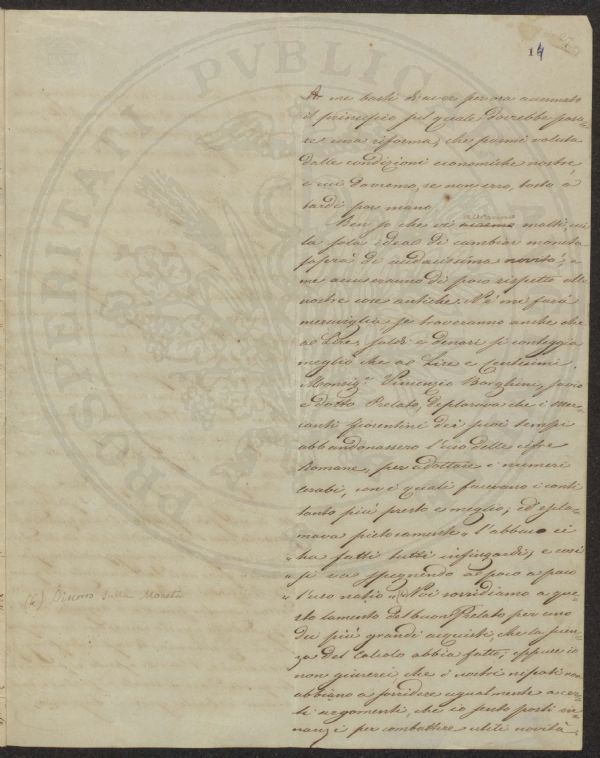 14
A me basti di aver per ora accennato
il principio sul quale dovrebbe posa-
re una riforma, che parmi voluta
dalle condizioni economiche nostre,
e cui dovremo, se non erro, tosto o
tardi por mano.
Ben so che vi avranno molti, cui
la sola idea di cambiar moneta
saprà di audacissima novità, e
me accuseranno di poco rispetto alle
nostre cose antiche. Nè me farà
meraviglia se troveranno anche che
a Lire, soldi e denari si conteggia
meglio che a Lire e Centesimi.
Monsigr. Vincenzio Borghini, savio
e dotto Prelato, deplorava che i Mer-
canti fiorentini dei suoi tempi
abbandonassero l'uso delle cifre
Romane, per adottare i numeri
Arabi, con i quali facevano i conti
tanto più presto e meglio; ed escla-
mava pietosamente "l'abbaco ci
"ha fatti tutti infingardi, e così
"si va spegnendo a poco a poco
"l'uso natio". Noi sorridiamo a que-
sto lamento del buon Prelato per uno
dei più grandi acquisti, che la scien-
za del Calcolo abbia fatto; eppure io
non giurerei che i nostri nepoti non
abbiano a sorridere ugualmente a cer-
ti argomenti, che io sento porsi in-
nanzi per combattere utili novità,
Discorso sulla Moneta
PROSPERITATI PVBLIC